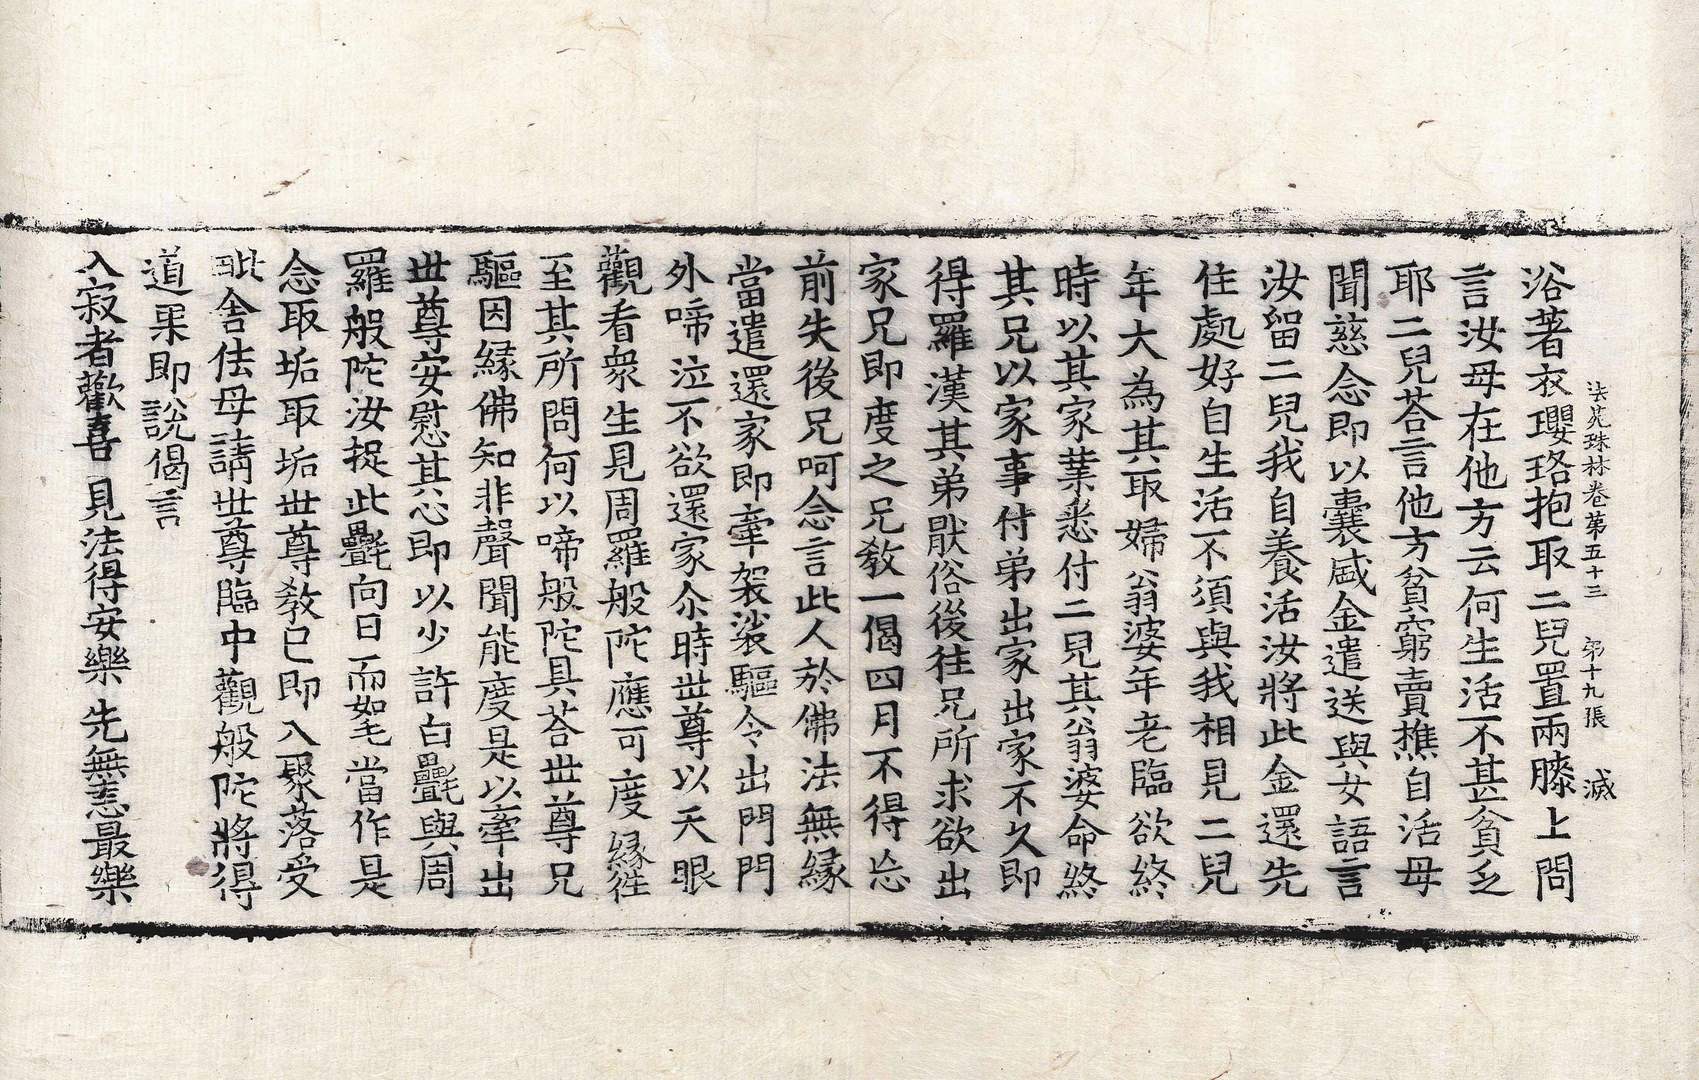 法苑珠林卷第五十三　第十九張　滅
浴著衣瓔珞抱取二兒置兩膝上問
言汝母在他方云何生活不甚貧乏
耶二兒荅言他方貧窮賣撨自活母
聞慈念即以囊盛金遣送與女語言
汝留二兒我自養活汝將此金還先
住處好自生活不須與我相見二兒
年大為其取婦翁婆年老臨欲終
時以其家業悉付二兒其翁婆命終
其兄以家事付弟出家出家不久即
得羅漢其弟猒俗後往兄所求欲出
家兄即度之兄教一偈四月不得忘
前失後兄呵念言此人於佛法無緣
當遣還家即牽袈裟驅令出門門
外啼泣不欲還家尒時世尊以天眼
觀看衆生見周羅般陀應可度緣徃
至其所問何以啼般陀具荅世尊兄
驅因緣佛知非聲聞能度是以牽出
世尊安慰其心即以少許白㲲與周
羅般陀汝捉此㲲向日而翆當作是
念取垢取垢世尊教已即入聚落受
毗舍佉母請世尊臨中觀般陀將得
道果即說偈言
入寂者歡喜　見法得安樂　先無恚最樂